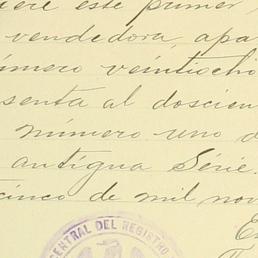 iere este primer
vendedora, apa
úmero veintiocho
senta al doscien
número uno d
antigua Série.
cinco de mil nov
CENTRAL DEL REGISTRO